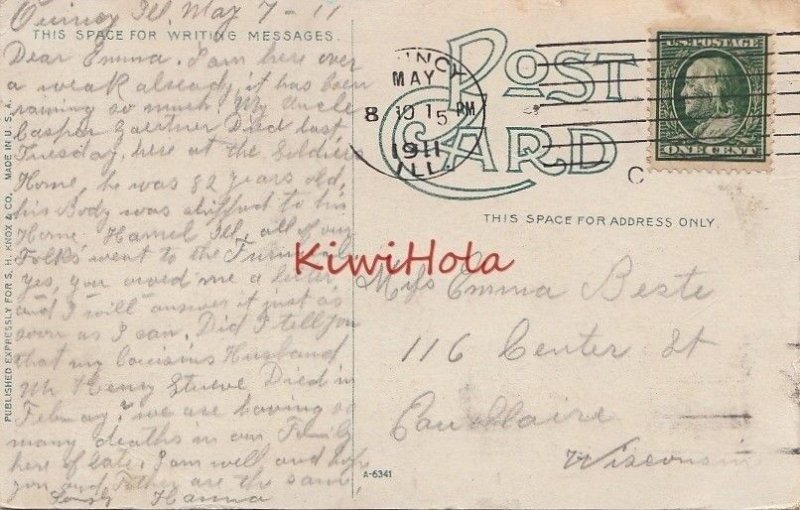 Quincy Ill. May 7 - 11
THIS SPACE FOR WRITING MESSAGES.
Dear Emma. I am here over
a weak already, it has been
raining so much. My Uncle
Casper Gaertner Died last
Tuesday, here at the Soldiers
Home, he was 82 years old,
his Body was shipped to his
Home. Hamel Ill, all of our
Folks went to the Funeral.
yes, you owed me a letter
and I will answer it just as
soon as I can, Did I tell you
that my cousins Husband
Mr Henry Stueve Died in
Febuary? we are having so
many deaths in our Family
here of late. I am well and hope
you and Father are the same,
Lovingly Hanna
PUBLISHED EXPRESSLY FOR S. H. KNOX & CO., MADE IN U. S. A.
POST
CARD
MAY
8 1015 PM
1911
ILL.
U.S. POSTAGE
ONE CENT
THIS SPACE FOR ADDRESS ONLY.
KiwiHola
Miss Emma Beste
116 Center St
Eau Claire
Wisconsin
A-6341